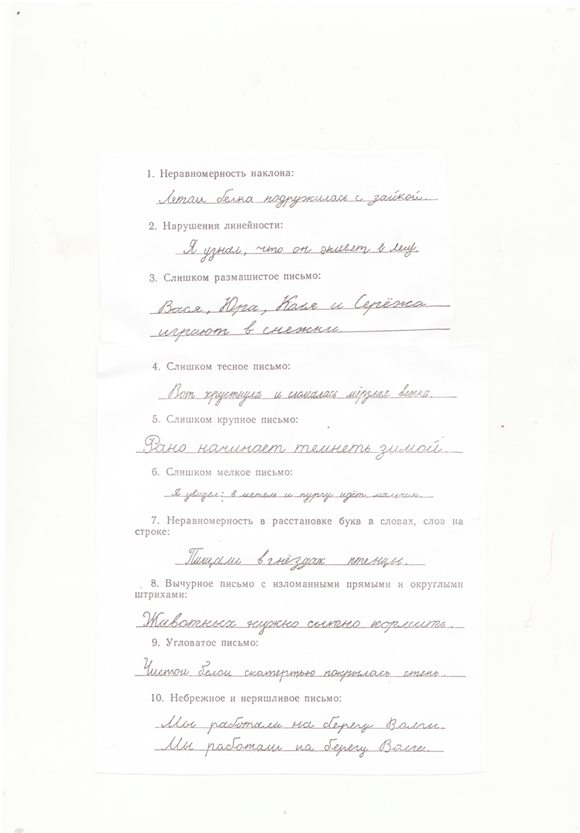 1. Неравномерность наклона:
Летом белка подружилась с зайкой.
2. Нарушения линейности:
Я узнал, что он живет в лесу.
3. Слишком размашистое письмо:
Вася, Юра, Коля и Серёжа
играют в снежки
4. Слишком тесное письмо:
Вот хрустнула и сломалась мёрзлая ветка.
5. Слишком крупное письмо:
Рано начинает темнеть зимой.
6. Слишком мелкое письмо:
Я увидел: в метель и пургу идёт мальчик.
7. Неравномерность в расстановке букв в словах, слов на
строке:
Пищали в гнёздах птенцы.
8. Вычурное письмо с изломанными прямыми и округлыми
штрихами:
Животных нужно сытно кормить.
9. Угловатое письмо:
Чистой белой скатертью покрылась степь.
10. Небрежное и неряшливое письмо:
Мы работали на берегу Волги.
Мы работали на берегу Волги.